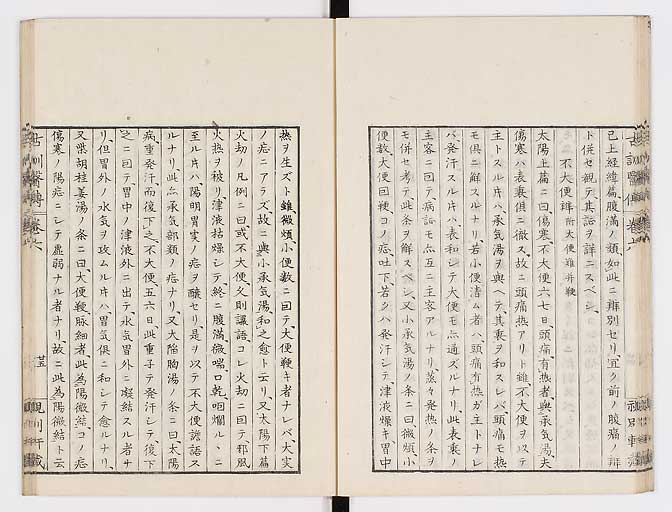 已上經緯篇腹滿ノ類如此ニ辨別セリ宜ク前ノ腹痛ノ辨
ト併セ觀テ其證ヲ詳ニスベシ
不大便辨 大便難并鞕
太陽上篇ニ曰傷寒不大便六七日頭痛有熱者與承氣湯夫
傷寒ハ表裏俱ニ徹ス故ニ頭痛熱アリト雖不大便ヲ以テ
主トスル片ハ承氣湯ヲ與ヘテ其裏ヲ和スレバ頭痛モ熱
モ俱ニ解スルナリ若小便清ム者ハ頭痛有熱ガ主トナレ
バ發汗スル片ハ表和シテ大便モ亦通ズルナリ此表裏ノ
主客ニ因テ病證モ亦互ニ主客アルナリ
モ併セ考テ此条ヲ解スベシ又小承氣湯ノ条ニ曰微煩小
便數大便因鞕コノ症吐下若クハ發汗シテ津液燥キ胃中
熱ヲ生ズト雖微煩小便數ニ因テ大便鞕キ者ナレバ大実
ノ症ニアラズ故ニ與小承氣湯和之愈ト云リ又太陽下篇
火劫ノ凡例ニ曰或不大便久則讝語コレ火劫ニ因テ邪風
火熱ヲ被リ津液枯燥シテ終ニ腹滿微喘口乾咽爛ルヽニ
至ル片ハ陽明胃実ノ症ヲ釀セリ是ヲ以テ不大便讝語ス
ルナリ此亦承氣部類ノ症ナリ又大陷胸湯ノ条ニ曰太陽
病重發汗而復下之不大便五六日此重子テ發汗シテ復下
之ニ因テ胃中ノ津液外ニ出テ水氣胃外ニ凝結スル者ナ
リ但胃外ノ水気ヲ攻ムル片ハ胃氣俱ニ和シテ愈ルナリ
又柴胡桂姜湯ノ条ニ曰大便鞕脉細者此為陽微結コノ症
傷寒ノ陽症ニシテ虚弱ナル者ナリ故ニ此為陽微結ト云
古訓醫傳 卷六